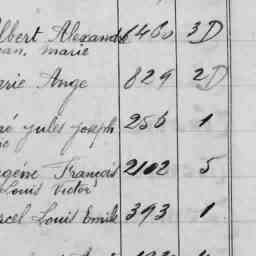 lbert Alexandre 6460 3D
ean, marie
arie Ange 829 2D
é Jules Joseph 256 1
gène François 2102 5
Louis Victor
rcel Louis Emile 393 1